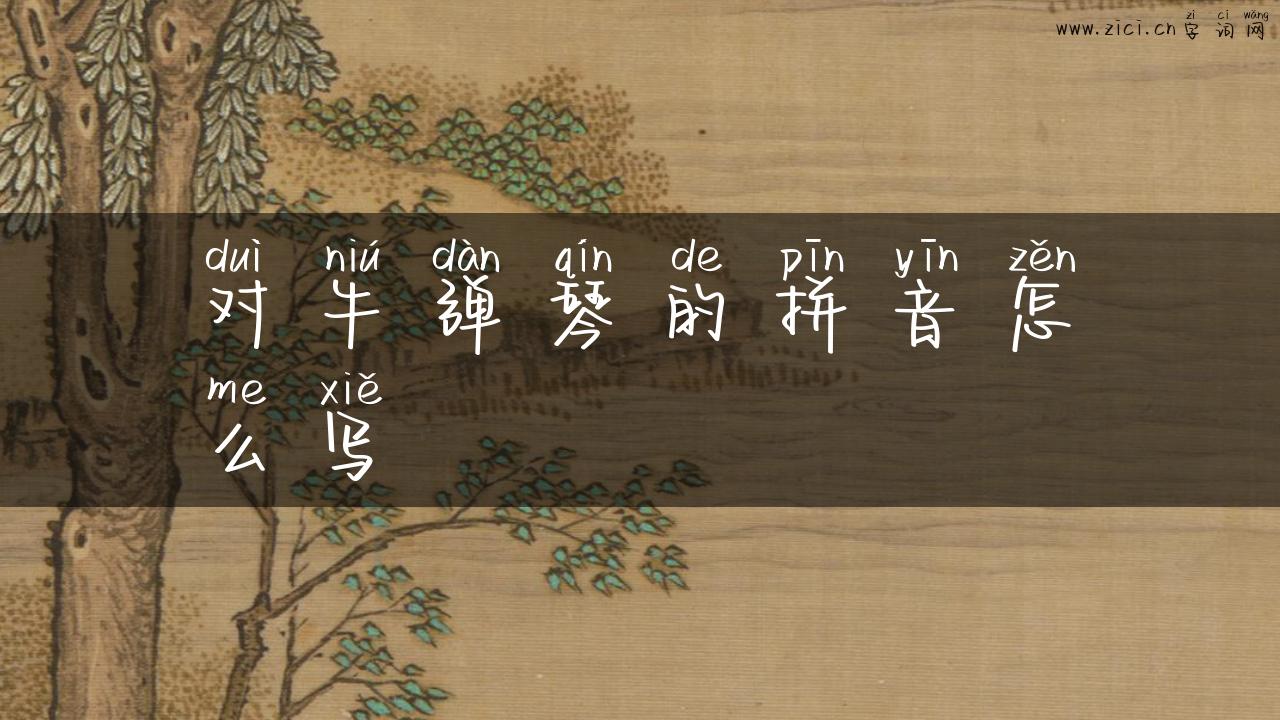 zì cí wǎng
www.zici.cn 字词网
duì niú dàn qín de pīn yīn zěn
对牛弹琴的拼音怎
me xiě
么写